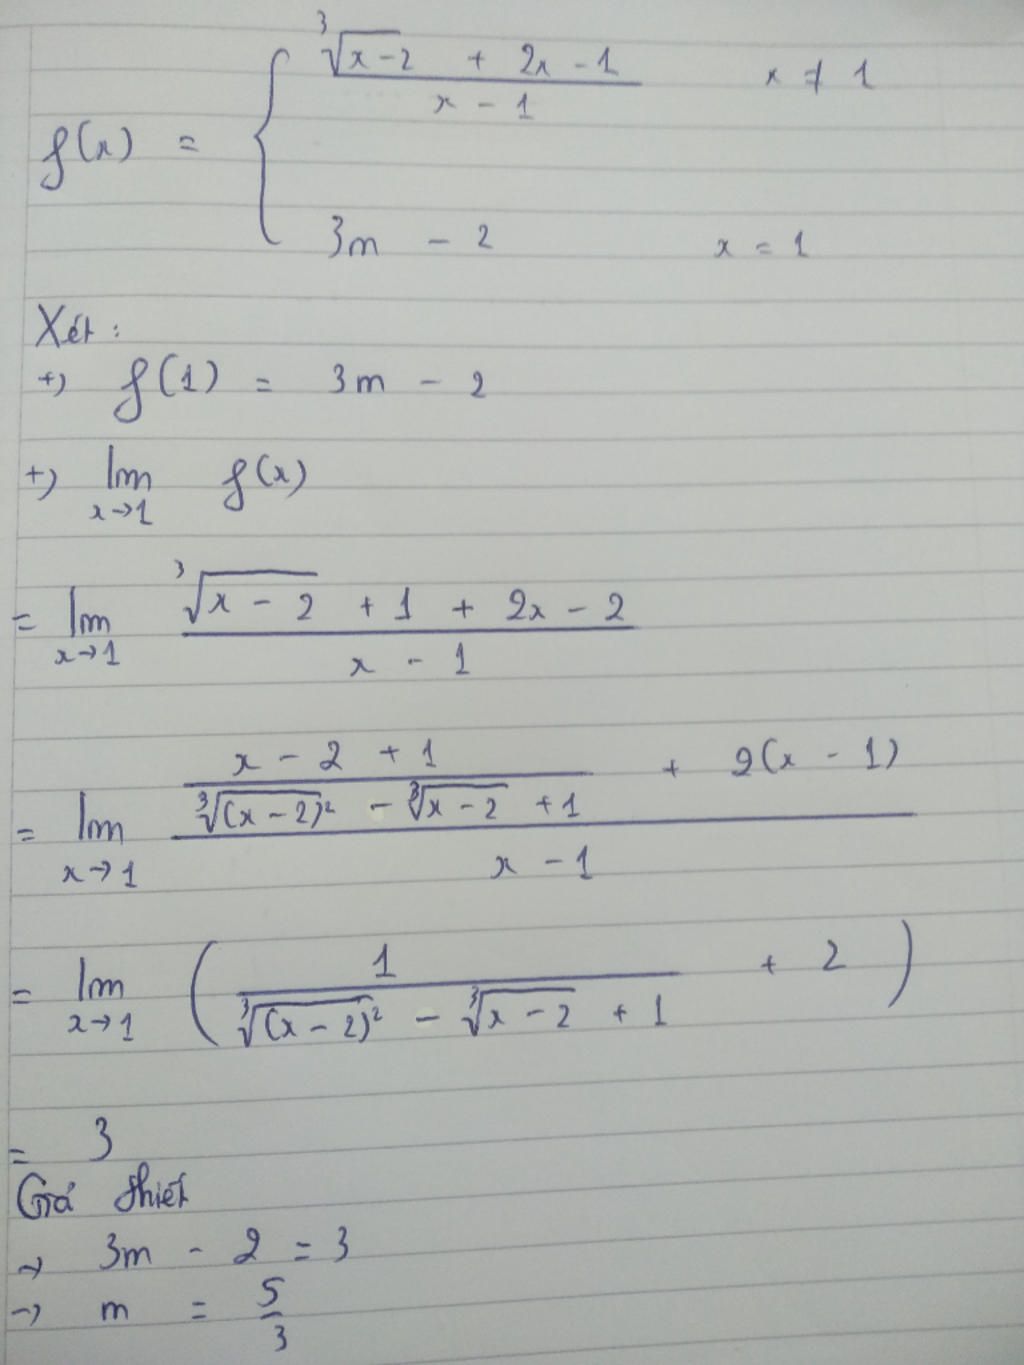 f(x) = { (∛(x-2) + 2x - 1)/(x - 1)    x ≠ 1
3m - 2    x = 1
Xét:
+) f(1) = 3m - 2
+) lim_{x→1} f(x)
= lim_{x→1} (∛(x - 2) + 1 + 2x - 2)/(x - 1)
= lim_{x→1} ((x - 2 + 1)/(∛((x - 2)²) - ∛(x - 2) + 1) + 2(x - 1))/(x - 1)
= lim_{x→1} (1/(∛((x - 2)²) - ∛(x - 2) + 1) + 2)
= 3
Giả thiết
→ 3m - 2 = 3
→ m = 5/3